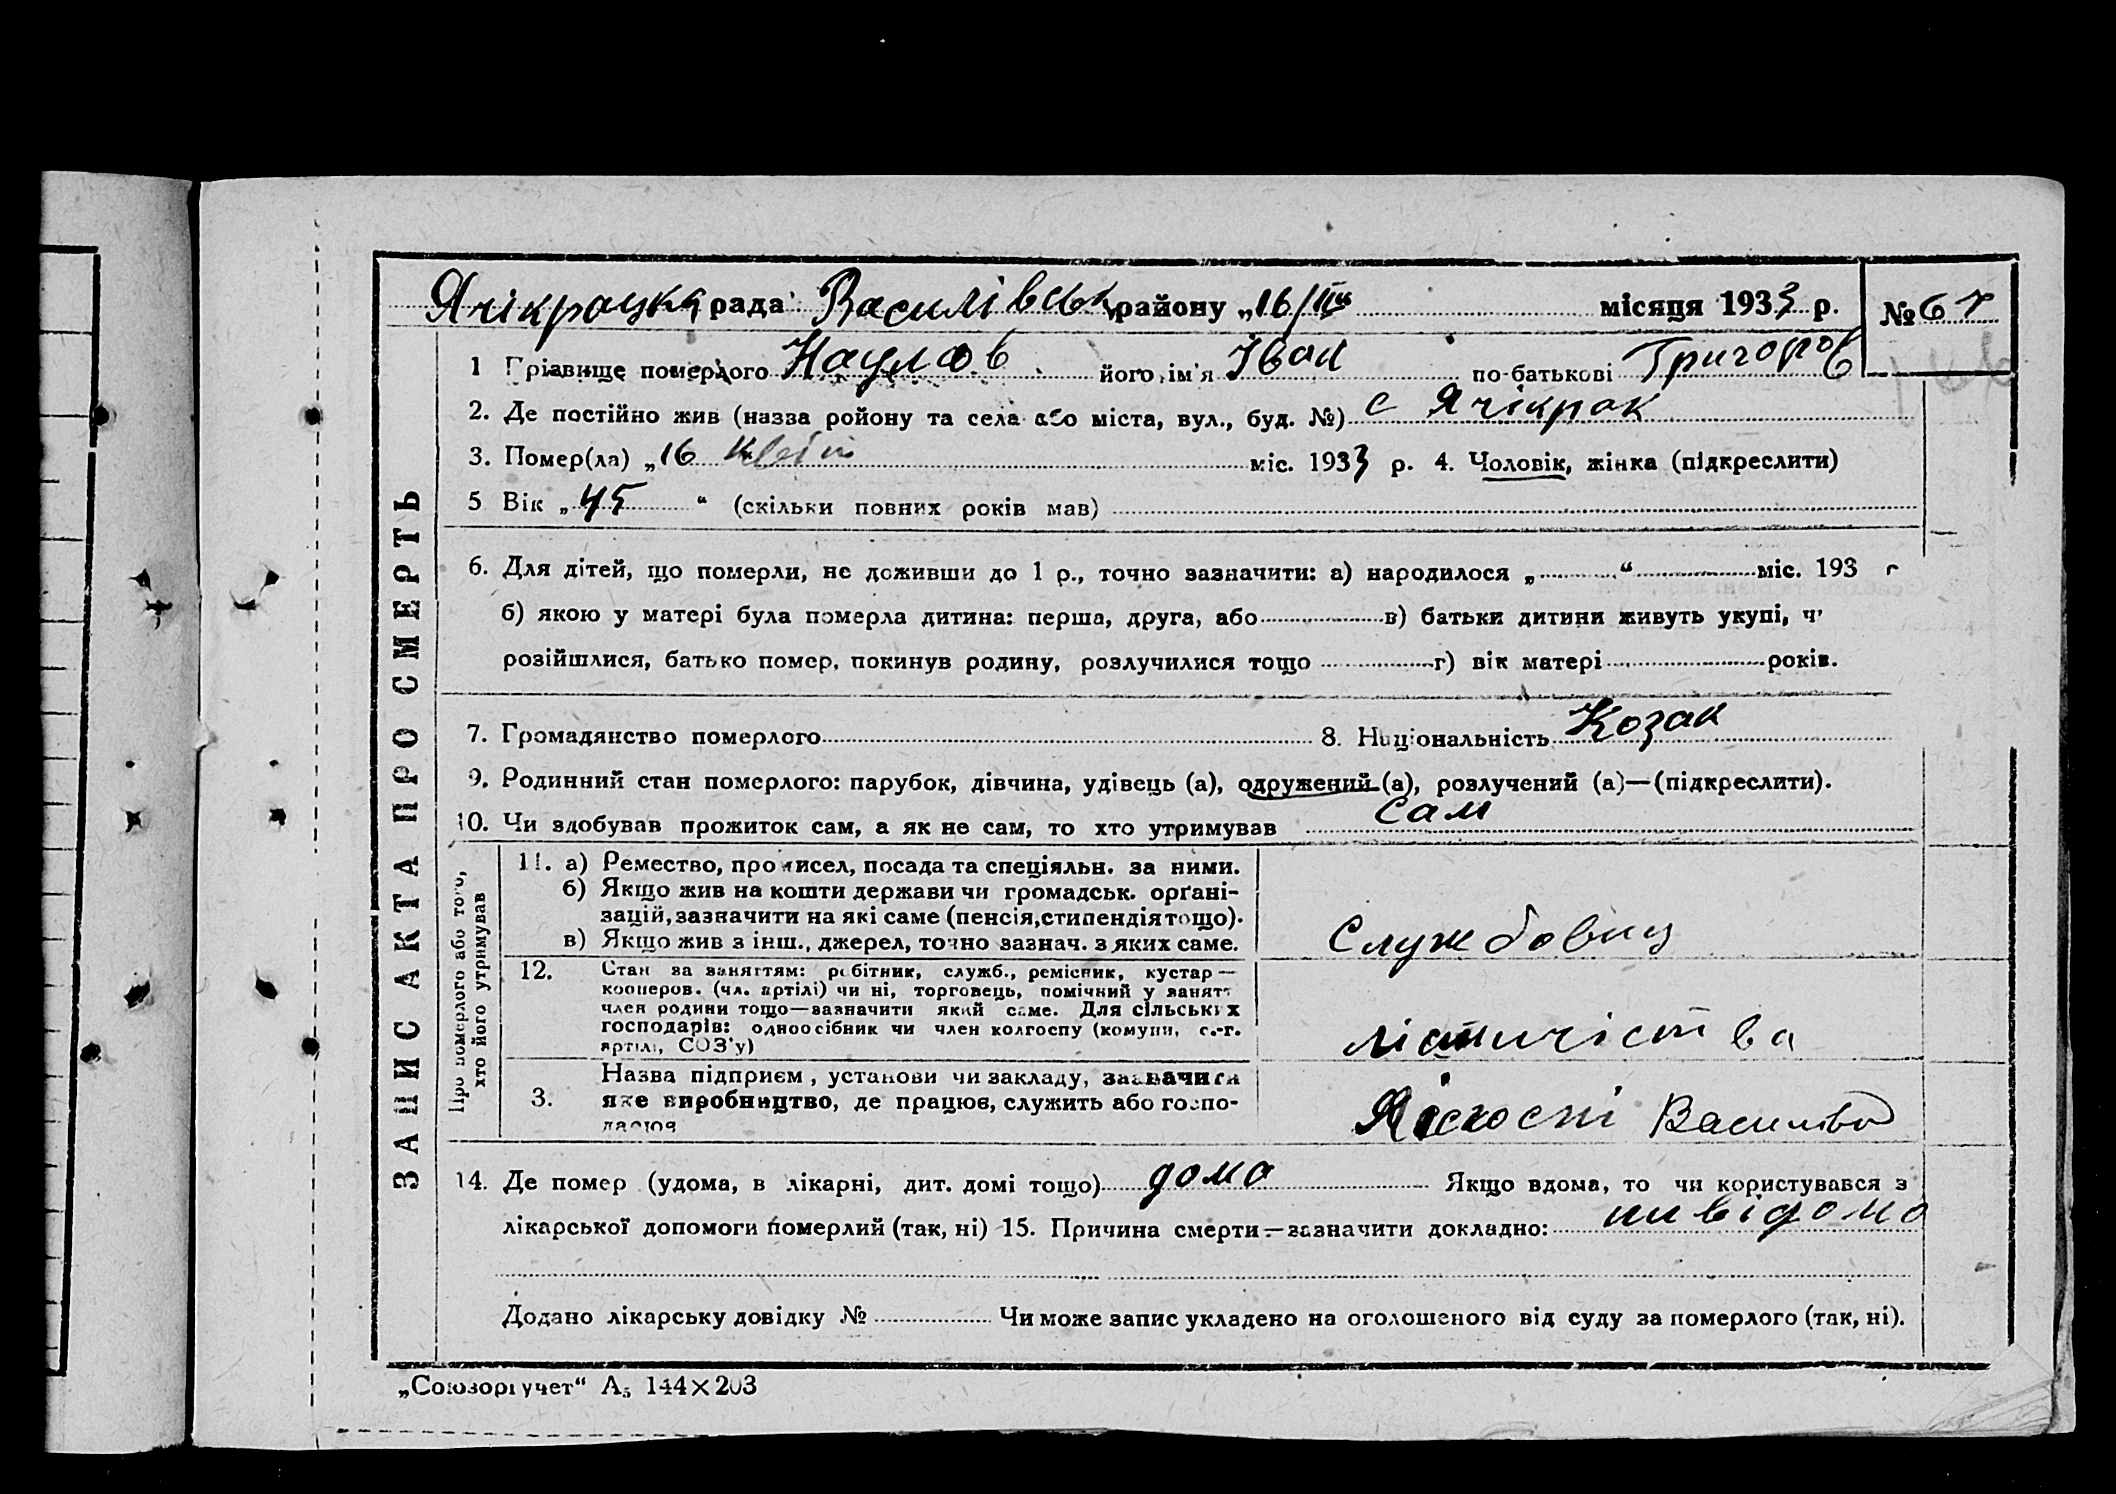 Ячікрацка рада Василівськ району „16/III місяця 1933 р. № 67
1 Прізвище померлого Наумов його ім'я Іван по-батькові Григоров
2. Де постійно жив (назва ройону та села або міста, вул., буд. №) с Ячікрак
3. Помер(ла) „16 міс. 1933 р. 4. Чоловік, жінка (підкреслити)
5 Вік „45“ (скільки повних років мав)
6. Для дітей, що померли, не доживши до 1 р., точно зазначити: а) народилося „ “ міс. 193 г
б) якою у матері була померла дитина: перша, друга, або в) батьки дитини живуть укупі, ч'
розійшлися, батько помер, покинув родину, розлучилися тощо г) вік матері років.
7. Громадянство померлого 8. Національність Козак
9. Родинний стан померлого: парубок, дівчина, удівець (а), одружений (а), розлучений (а)—(підкреслити).
10. Чи здобував прожиток сам, а як не сам, то хто утримував сам
ЗАПИС АКТА ПРО СМЕРТЬ
Про померлого або того,
хто його утримував
11. а) Ремество, промисел, посада та спеціяльн. за ними.
б) Якщо жив на кошти держави чи громадськ. орґані-
зацій, зазначити на які саме (пенсія, стипендія тощо).
в) Якщо жив з інш., джерел, точно зазнач. з яких саме.
Службовиц
12. Стан за заняттям: робітник, служб., ремісник, кустар—
кооперов. (чл. артілі) чи ні, торговець, помічний у занятт
член родини тощо—зазначити який саме. Для сільських
господарів: одноосібник чи член колгоспу (комуни, с.-г.
артілі, СОЗ'у)
3. Назва підприєм, установи чи закладу, зазначити
яке виробництво, де працюв, служить або госпо-
дарюв
Василівс
14. Де помер (удома, в лікарні, дит. домі тощо) дома Якщо вдома, то чи користувався з
лікарської допомоги померлий (так, ні) 15. Причина смерти—зазначити докладно: нивідома
Додано лікарську довідку № Чи може запис укладено на оголошеного від суду за померлого (так, ні).
„Союзоргучет“ А5 144×203